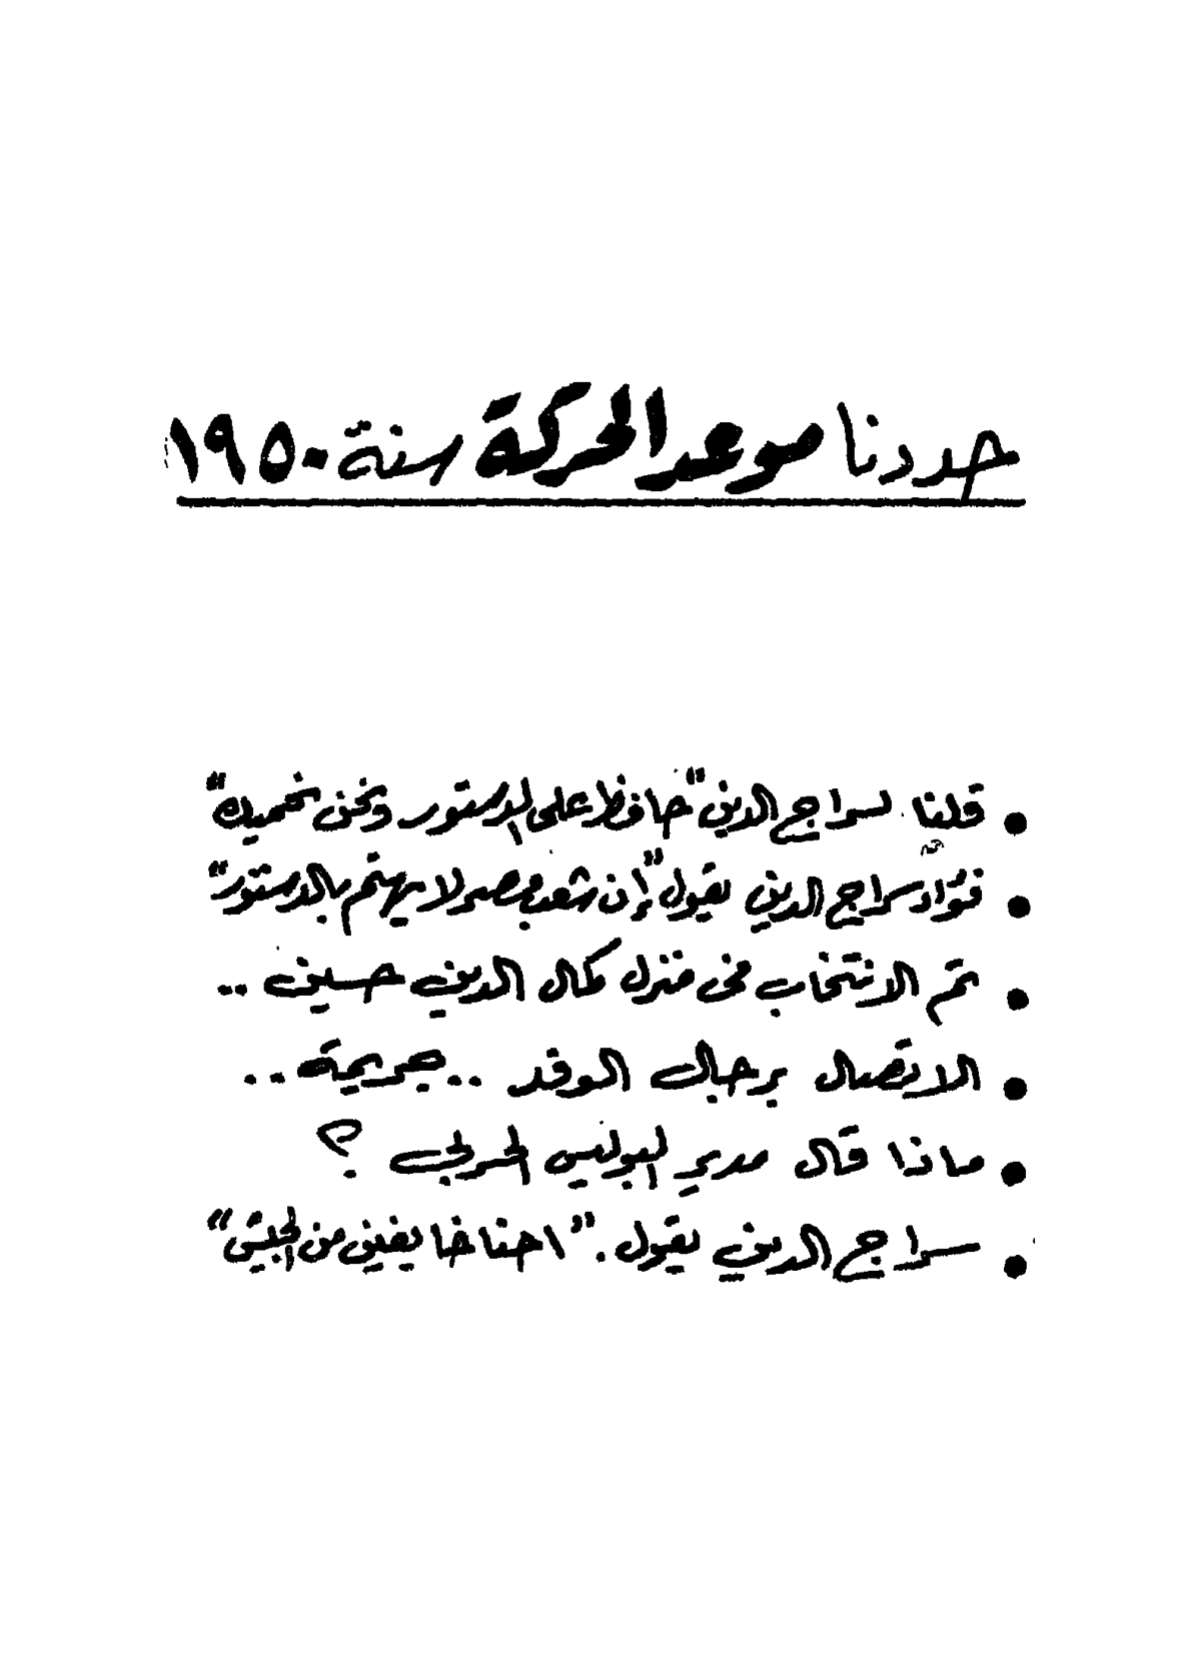 حددنا موعد الحركة سنة ١٩٥٠
• قلنا لسراج الدين "حافظ على الدستور ونحن نحميك"
• فؤاد سراج الدين يقول "إن شعب مصر لا يهتم بالدستور"
• تم الانتخاب فى منزل كمال الدين حسين ..
• الاتصال برجال الوفد .. جريمة ..
• ماذا قال مدير البوليس الحربى ؟
• سراج الدين يقول . "احنا خايفين من الجيش"